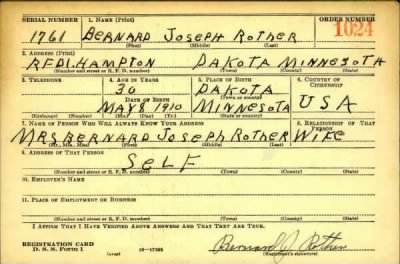 SERIAL NUMBER 1. NAME (Print) ORDER NUMBER
1761 BERNARD JOSEPH ROTHER 1024
(First) (Middle) (Last)
2. ADDRESS (Print)
RFD1. HAMPTON DAKOTA MINNESOTA
(Number and street or R. F. D. number) (Town) (County) (State)
3. TELEPHONE 4. AGE IN YEARS 5. PLACE OF BIRTH 6. COUNTRY OF CITIZENSHIP
30 DAKOTA
DATE OF BIRTH (Town or county)
MAY 8 1910 MINNESOTA USA
(Exchange) (Number) (Mo.) (Day) (Yr.) (State or country)
7. NAME OF PERSON WHO WILL ALWAYS KNOW YOUR ADDRESS 8. RELATIONSHIP OF THAT PERSON
MRS BERNARD JOSEPH ROTHER WIFE
(Mr., Mrs., Miss) (First) (Middle) (Last)
9. ADDRESS OF THAT PERSON
SELF
(Number and street or R. F. D. number) (Town) (County) (State)
10. EMPLOYER'S NAME
11. PLACE OF EMPLOYMENT OR BUSINESS
(Number and street or R. F. D. number) (Town) (County) (State)
I AFFIRM THAT I HAVE VERIFIED ABOVE ANSWERS AND THAT THEY ARE TRUE.
REGISTRATION CARD
D. S. S. Form 1 (over) Bernard J Rother
(Registrant's signature)